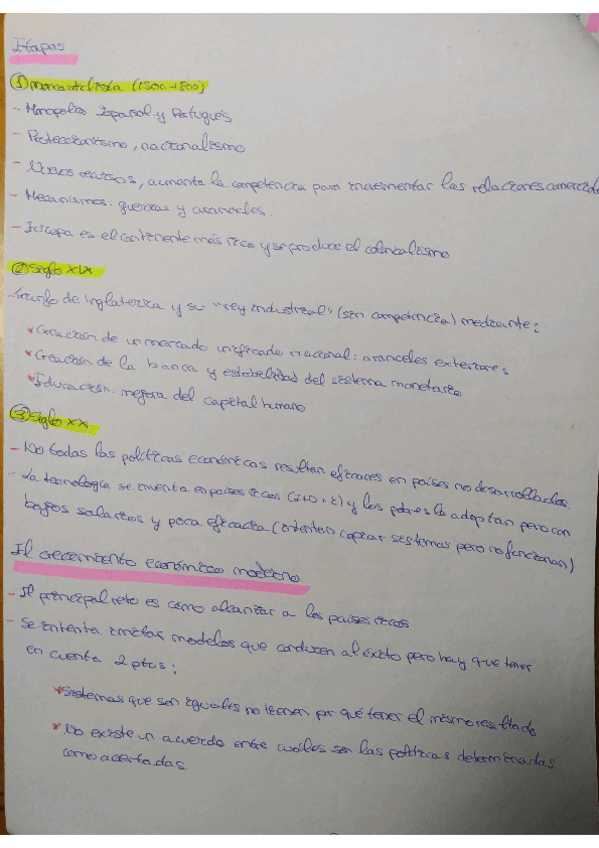 Etapas
① mercantilista (1500-1800)
- Monopolio Español y Portugués
- Proteccionismo, nacionalismo
- Nuevos recursos, aumenta la competencia para incrementar las relaciones comerciales
- Mecanismos: guerras y aranceles.
- Europa es el continente más rico y se produce el colonialismo
② Siglo XIX
- Triunfo de Inglaterra y su "rey industrial" (sin competencia) mediante:
* Creación de un mercado unificado nacional: aranceles exteriores
* Creación de la banca y estabilidad del sistema monetario
* Educación: mejora del capital humano
③ Siglo XX
- No todas las políticas económicas resultan eficaces en países no desarrollados.
- La tecnología se inventa en países ricos (I+D+I) y los pobres la adoptan pero con
bajos salarios y poca eficacia (intentan copiar sistemas pero no funcionan)
El crecimiento económico moderno
- El principal reto es como alcanzar a los países ricos
- Se intenta imitar modelos que conducen al éxito pero hay que tener
en cuenta 2 ptos:
* Sistemas que son iguales no tienen por qué tener el mismo resultado
* No existe un acuerdo entre cuáles son las políticas determinadas
como acertadas